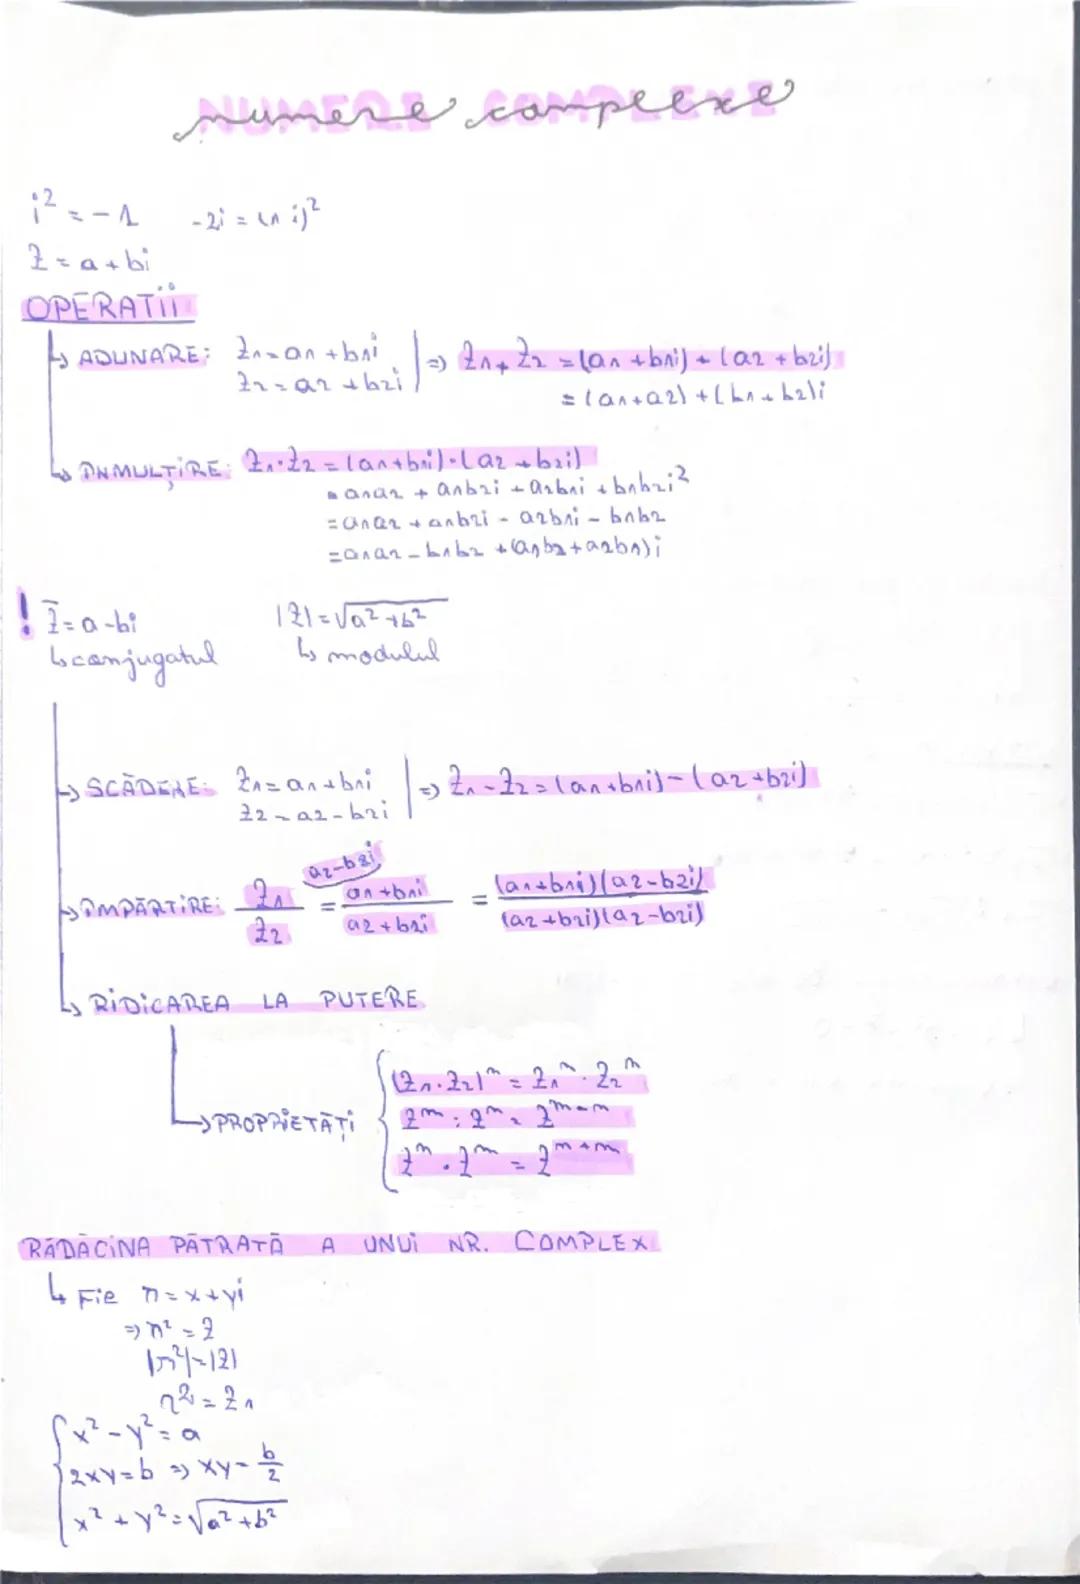 numere complexe
i² = -1    -2i = (1 i)²
z = a + bi
OPERAȚII
↳ ADUNARE: z₁ = a₁ + b₁i | ⇒ z₁ + z₂ = (a₁ + b₁i) + (a₂ + b₂i)
z₂ = a₂ + b₂i | = (a₁ + a₂) + (b₁ + b₂)i
↳ ÎNMULȚIRE: z₁ · z₂ = (a₁ + b₁i) · (a₂ + b₂i)
= a₁a₂ + a₁b₂i + a₂b₁i + b₁b₂i²
= a₁a₂ + a₁b₂i - a₂b₁i - b₁b₂
= a₁a₂ - b₁b₂ + (a₁b₂ + a₂b₁)i
! z̄ = a - bi    |z| = √(a² + b²)
↳ conjugatul    ↳ modulul
↳ SCĂDERE: z₁ = a₁ + b₁i | ⇒ z₁ - z₂ = (a₁ + b₁i) - (a₂ + b₂i)
z₂ = a₂ - b₂i |
a₂ - b₂i
↳ ÎMPĂRȚIRE: z₁/z₂ = (a₁ + b₁i)/(a₂ + b₂i) = (a₁ + b₁i)(a₂ - b₂i)/(a₂ + b₂i)(a₂ - b₂i)
↳ RIDICAREA LA PUTERE
(z₁ · z₂)ⁿ = z₁ⁿ · z₂ⁿ
↳ PROPRIETĂȚI { zᵐ : zⁿ = zᵐ⁻ⁿ
zᵐ · zⁿ = zᵐ⁺ⁿ
RĂDĂCINA PĂTRATĂ A UNUI NR. COMPLEX
↳ Fie r = x + yi
⇒ r² = z
|r²| = |z|
r² = z₁
x² - y² = a
2xy = b ⇒ xy = b/2
x² + y² = √(a² + b²)